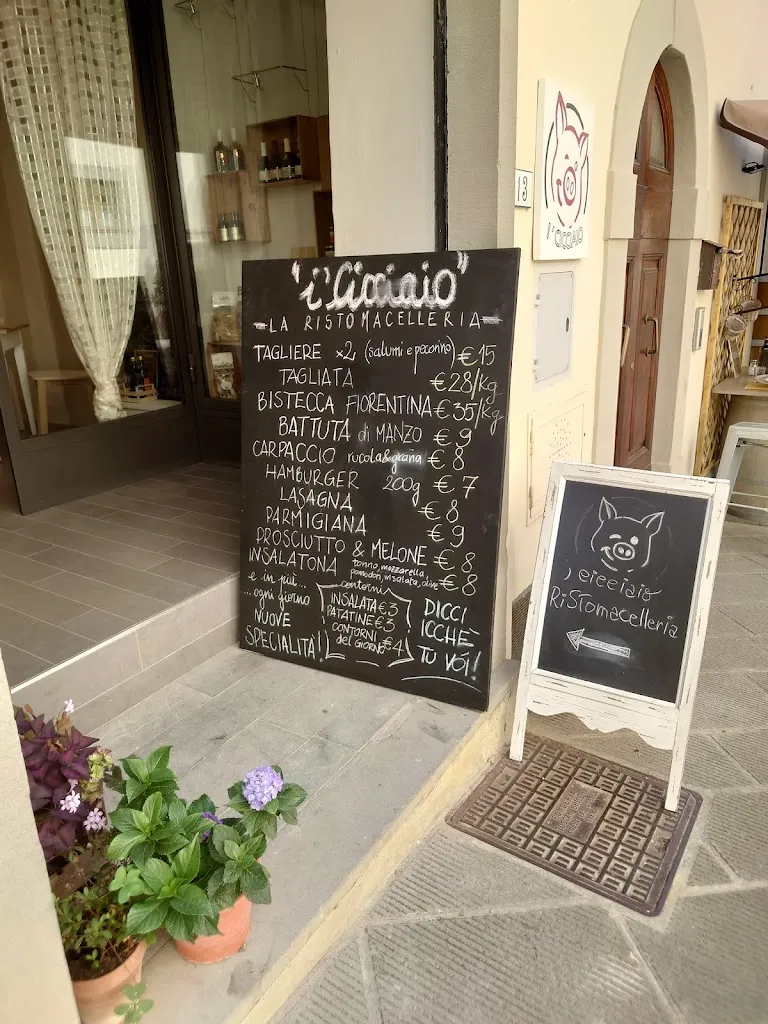 "i'Cicciaio"
LA RISTOMACELLERIA
TAGLIERE x2 (salumi e pecorino) €15
TAGLIATA €28/kg
BISTECCA FIORENTINA €35/kg
BATTUTA di MANZO €9
CARPACCIO rucola&grana €8
HAMBURGER 200g €7
LASAGNA €8
PARMIGIANA €9
PROSCIUTTO & MELONE €8
INSALATONA tonno, mozzarella, pomodori, insalata, olive €8
e in più...
...ogni giorno
NUOVE
SPECIALITÀ!
contorni
INSALATA €3
PATATINE €3
CONTORNI
del GIORNO €4
DICCI
ICCHÈ
TU VÒI!
13
i'CICCIAIO
i'cicciaio
RiSTOmacelleria